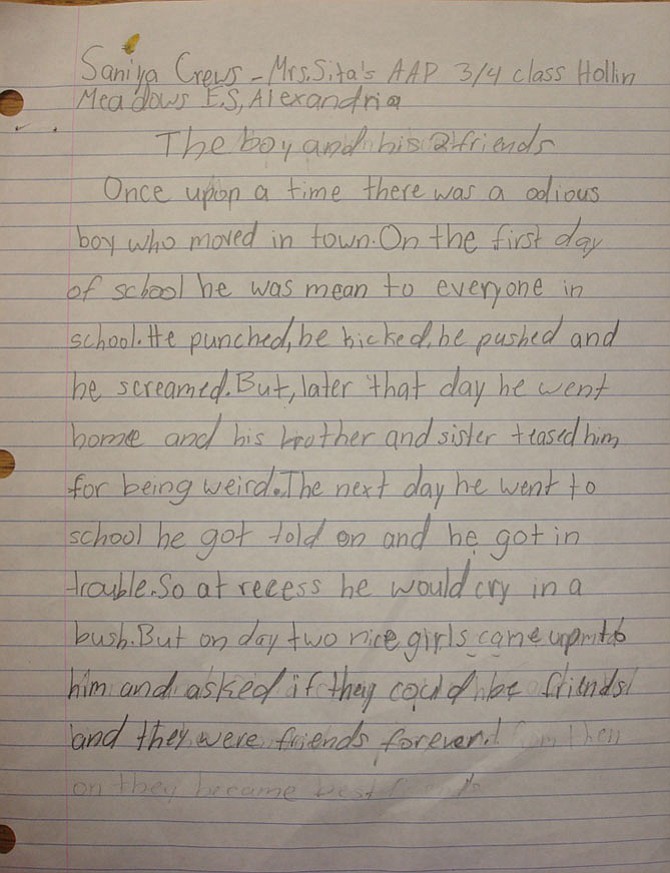 Saniya Crews - Mrs. Sita's AAP 3/4 class Hollin
Meadows E.S, Alexandria
The boy and his 2 friends
Once upon a time there was a odious
boy who moved in town. On the first day
of school he was mean to everyone in
school. He punched, he kicked, he pushed and
he screamed. But, later that day he went
home and his brother and sister teased him
for being weird. The next day he went to
school he got told on and he got in
trouble. So at recess he would cry in a
bush. But on day two nice girls came up to
him and asked if they could be friends
and they were friends forever. then
on they became best